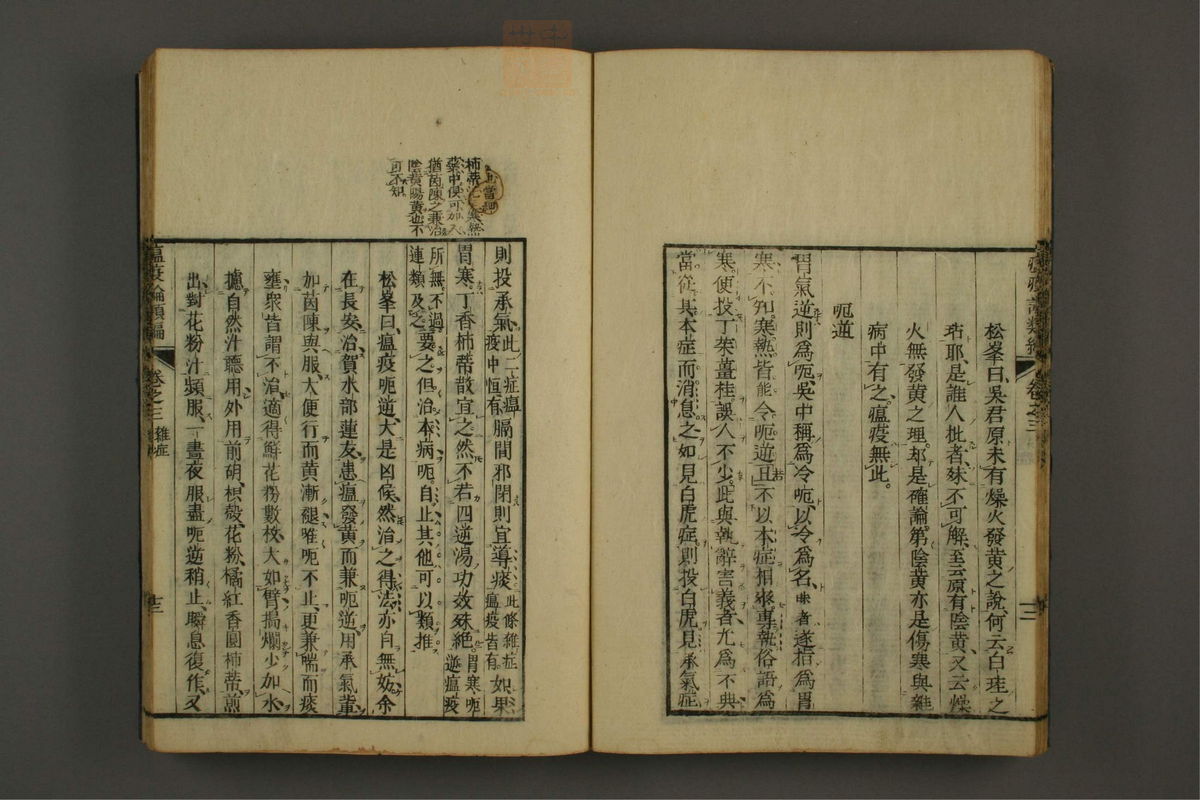 松峯曰、吳君原未有燥火發黃之說、何云白珪之
玷耶、是誰人批者、殊不可解、至云原有陰黃、又云燥
火無發黃之理、却是確論、第陰黃亦是傷寒與雜
病中有之、瘟疫無此。
呃逆
胃氣逆則爲呃、吳中稱爲冷呃、以冷爲名、遂指爲胃
寒、不知寒熱皆能令呃逆、且不以本症相參、專執俗語爲
寒、便投丁茱薑桂、誤人不少、此與執辭害義者、尤爲不典
當從其本症而消息之、如見白虎症則投白虎、見承氣症
則投承氣、此二症瘟疫中恒有膈間邪閉則宜導痰、此條雜症瘟疫皆有如果
胃寒、丁香柿蒂散宜之、然不若四逆湯功效殊絕、胃寒呃逆瘟疫
所無、不過連類及之要之、但治本病、呃自止、其他可以類推
松峯曰、瘟疫呃逆、大是凶候、然治之得法、亦自無妨、余
在長安、治賀水部蓮友、患瘟發黃而兼呃逆、用承氣輩、
加茵陳與服、大便行而黃漸褪、唯呃不止、更兼喘而痰
壅、衆皆謂不治、適得鮮花粉數枚、大如臂、搗爛少加水、
攄自然汁聽用、外用前胡、枳殼、花粉、橘紅香圓柿蒂、煎
出、對花粉汁頻服、一晝夜服盡、呃逆稍止、瞬息復作、又
瘟疫論類編
卷之三
雜症
柿蒂
藥中便可加入
猶茵陳之兼治
陰黃陽黃也、不
可不知